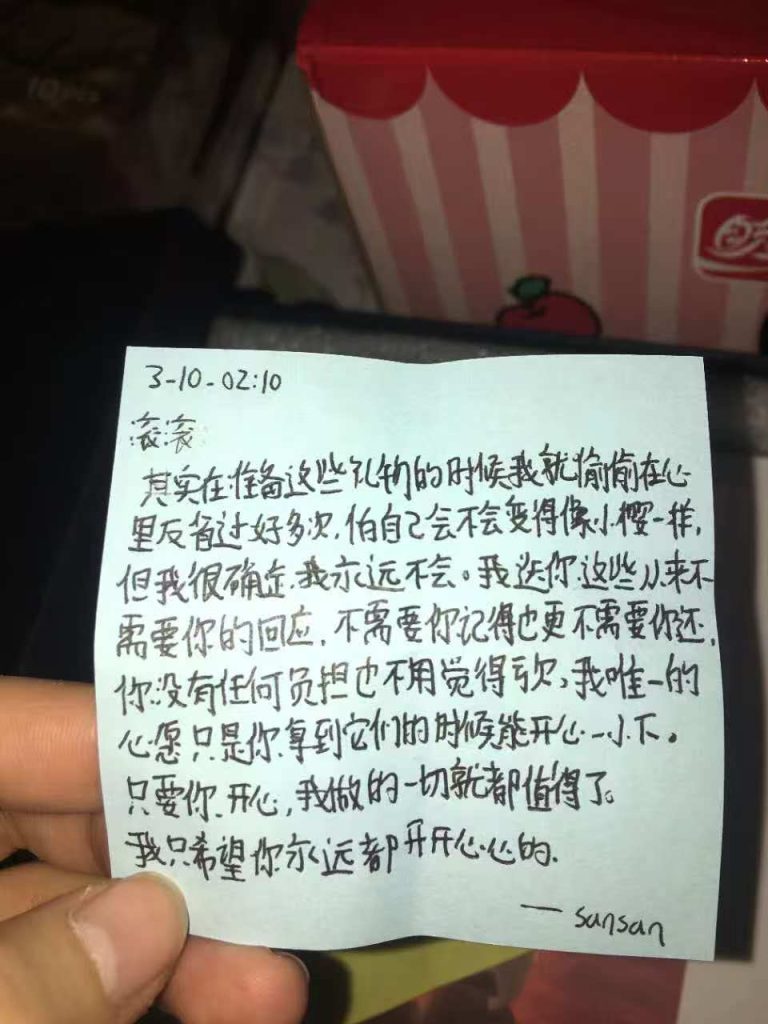 3-10-02:10
滚滚
其实在准备这些礼物的时候我就偷偷在心
里反省过好多次,怕自己会不会变得像小樱一样,
但我很确定,我永远不会。我送你这些从来不
需要你的回应,不需要你记得也更不需要你还,
你没有任何负担也不用觉得亏欠,我唯一的
心愿只是你拿到它们的时候能开心一小下。
只要你开心,我做的一切就都值得了。
我只希望你永远都开开心心的.
— sansan